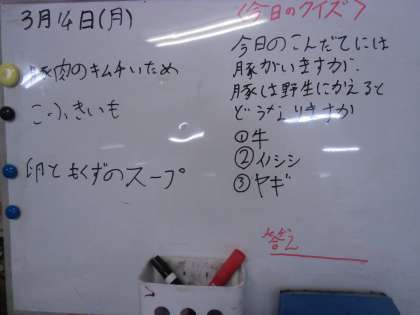 3月14日(月)
豚肉のキムチいため
こふきいも
卵ともくずのスープ
〈今日のクイズ〉
今日のこんだてには
豚がいますが、
豚は野生にかえると
どうなりますか
①牛
②イノシシ
③ヤギ
答え